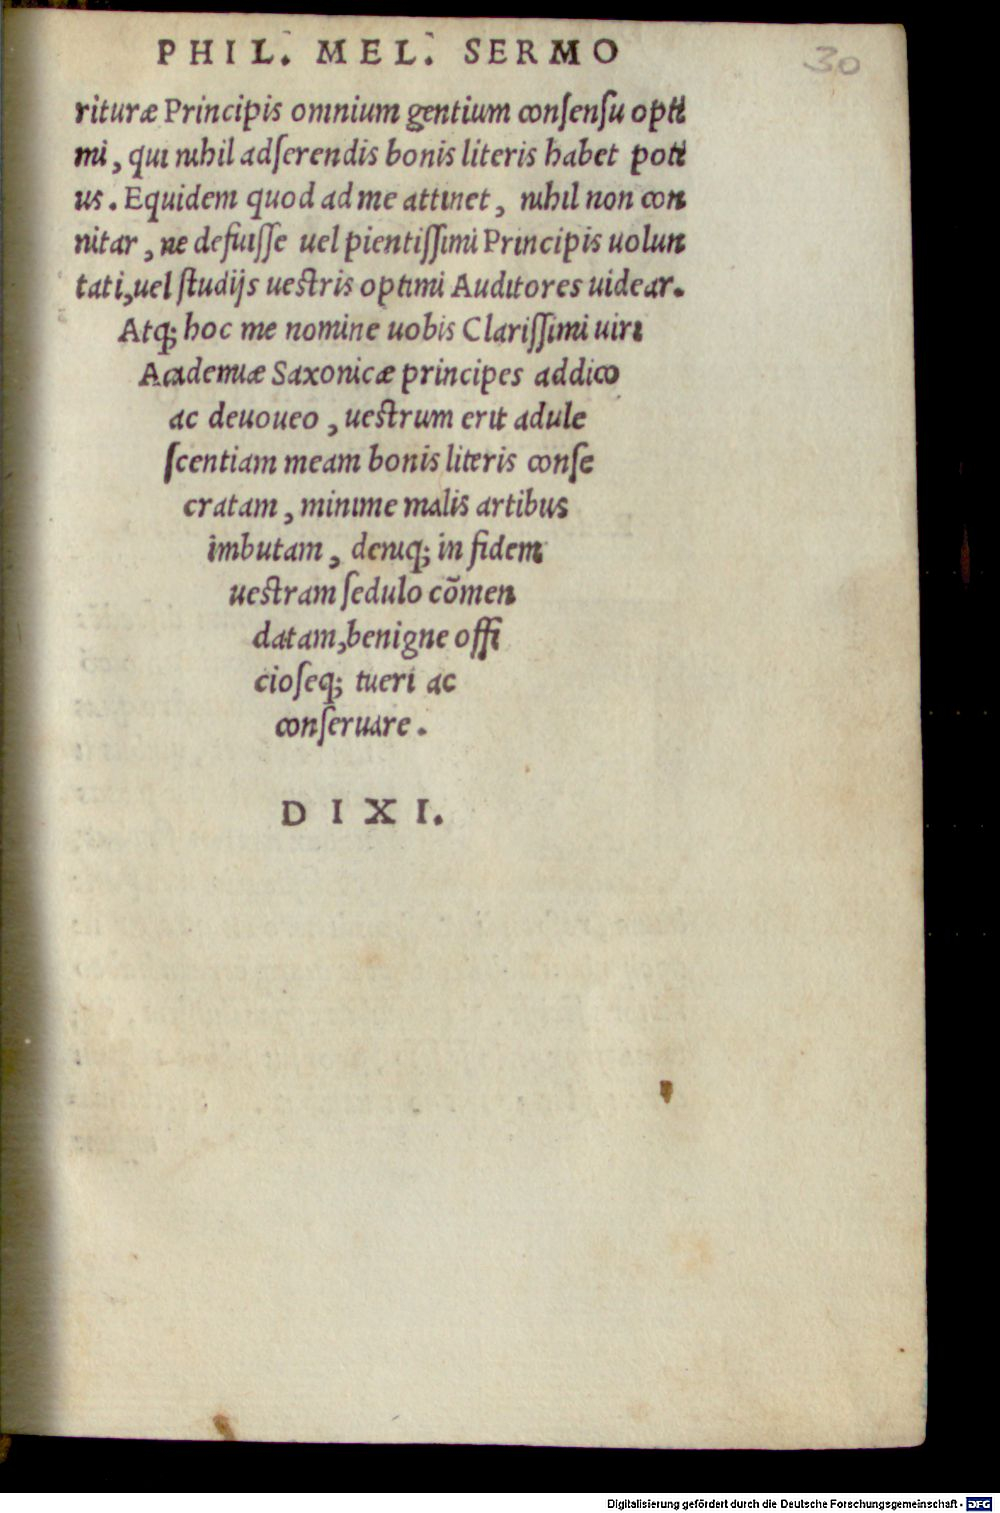 PHIL. MEL. SERMO
30
rituræ Principis omnium gentium conſenſu opti
mi, qui nihil adſerendis bonis literis habet poti
us. Equidem quod ad me attinet, nihil non con
nitar, ne defuiſſe uel pientiſſimi Principis uolun
tati, uel ſtudijs ueſtris optimi Auditores uidear.
Atq; hoc me nomine uobis Clariſſimi uiri
Academiæ Saxonicæ principes addico
ac deuoueo, ueſtrum erit adule
ſcentiam meam bonis literis conſe
cratam, minime malis artibus
imbutam, deniq; in fidem
ueſtram ſedulo cōmen
datam, benigne offi
cioſeq; tueri ac
conſeruare.
DIXI.
Digitalisierung gefördert durch die Deutsche Forschungsgemeinschaft - DFG